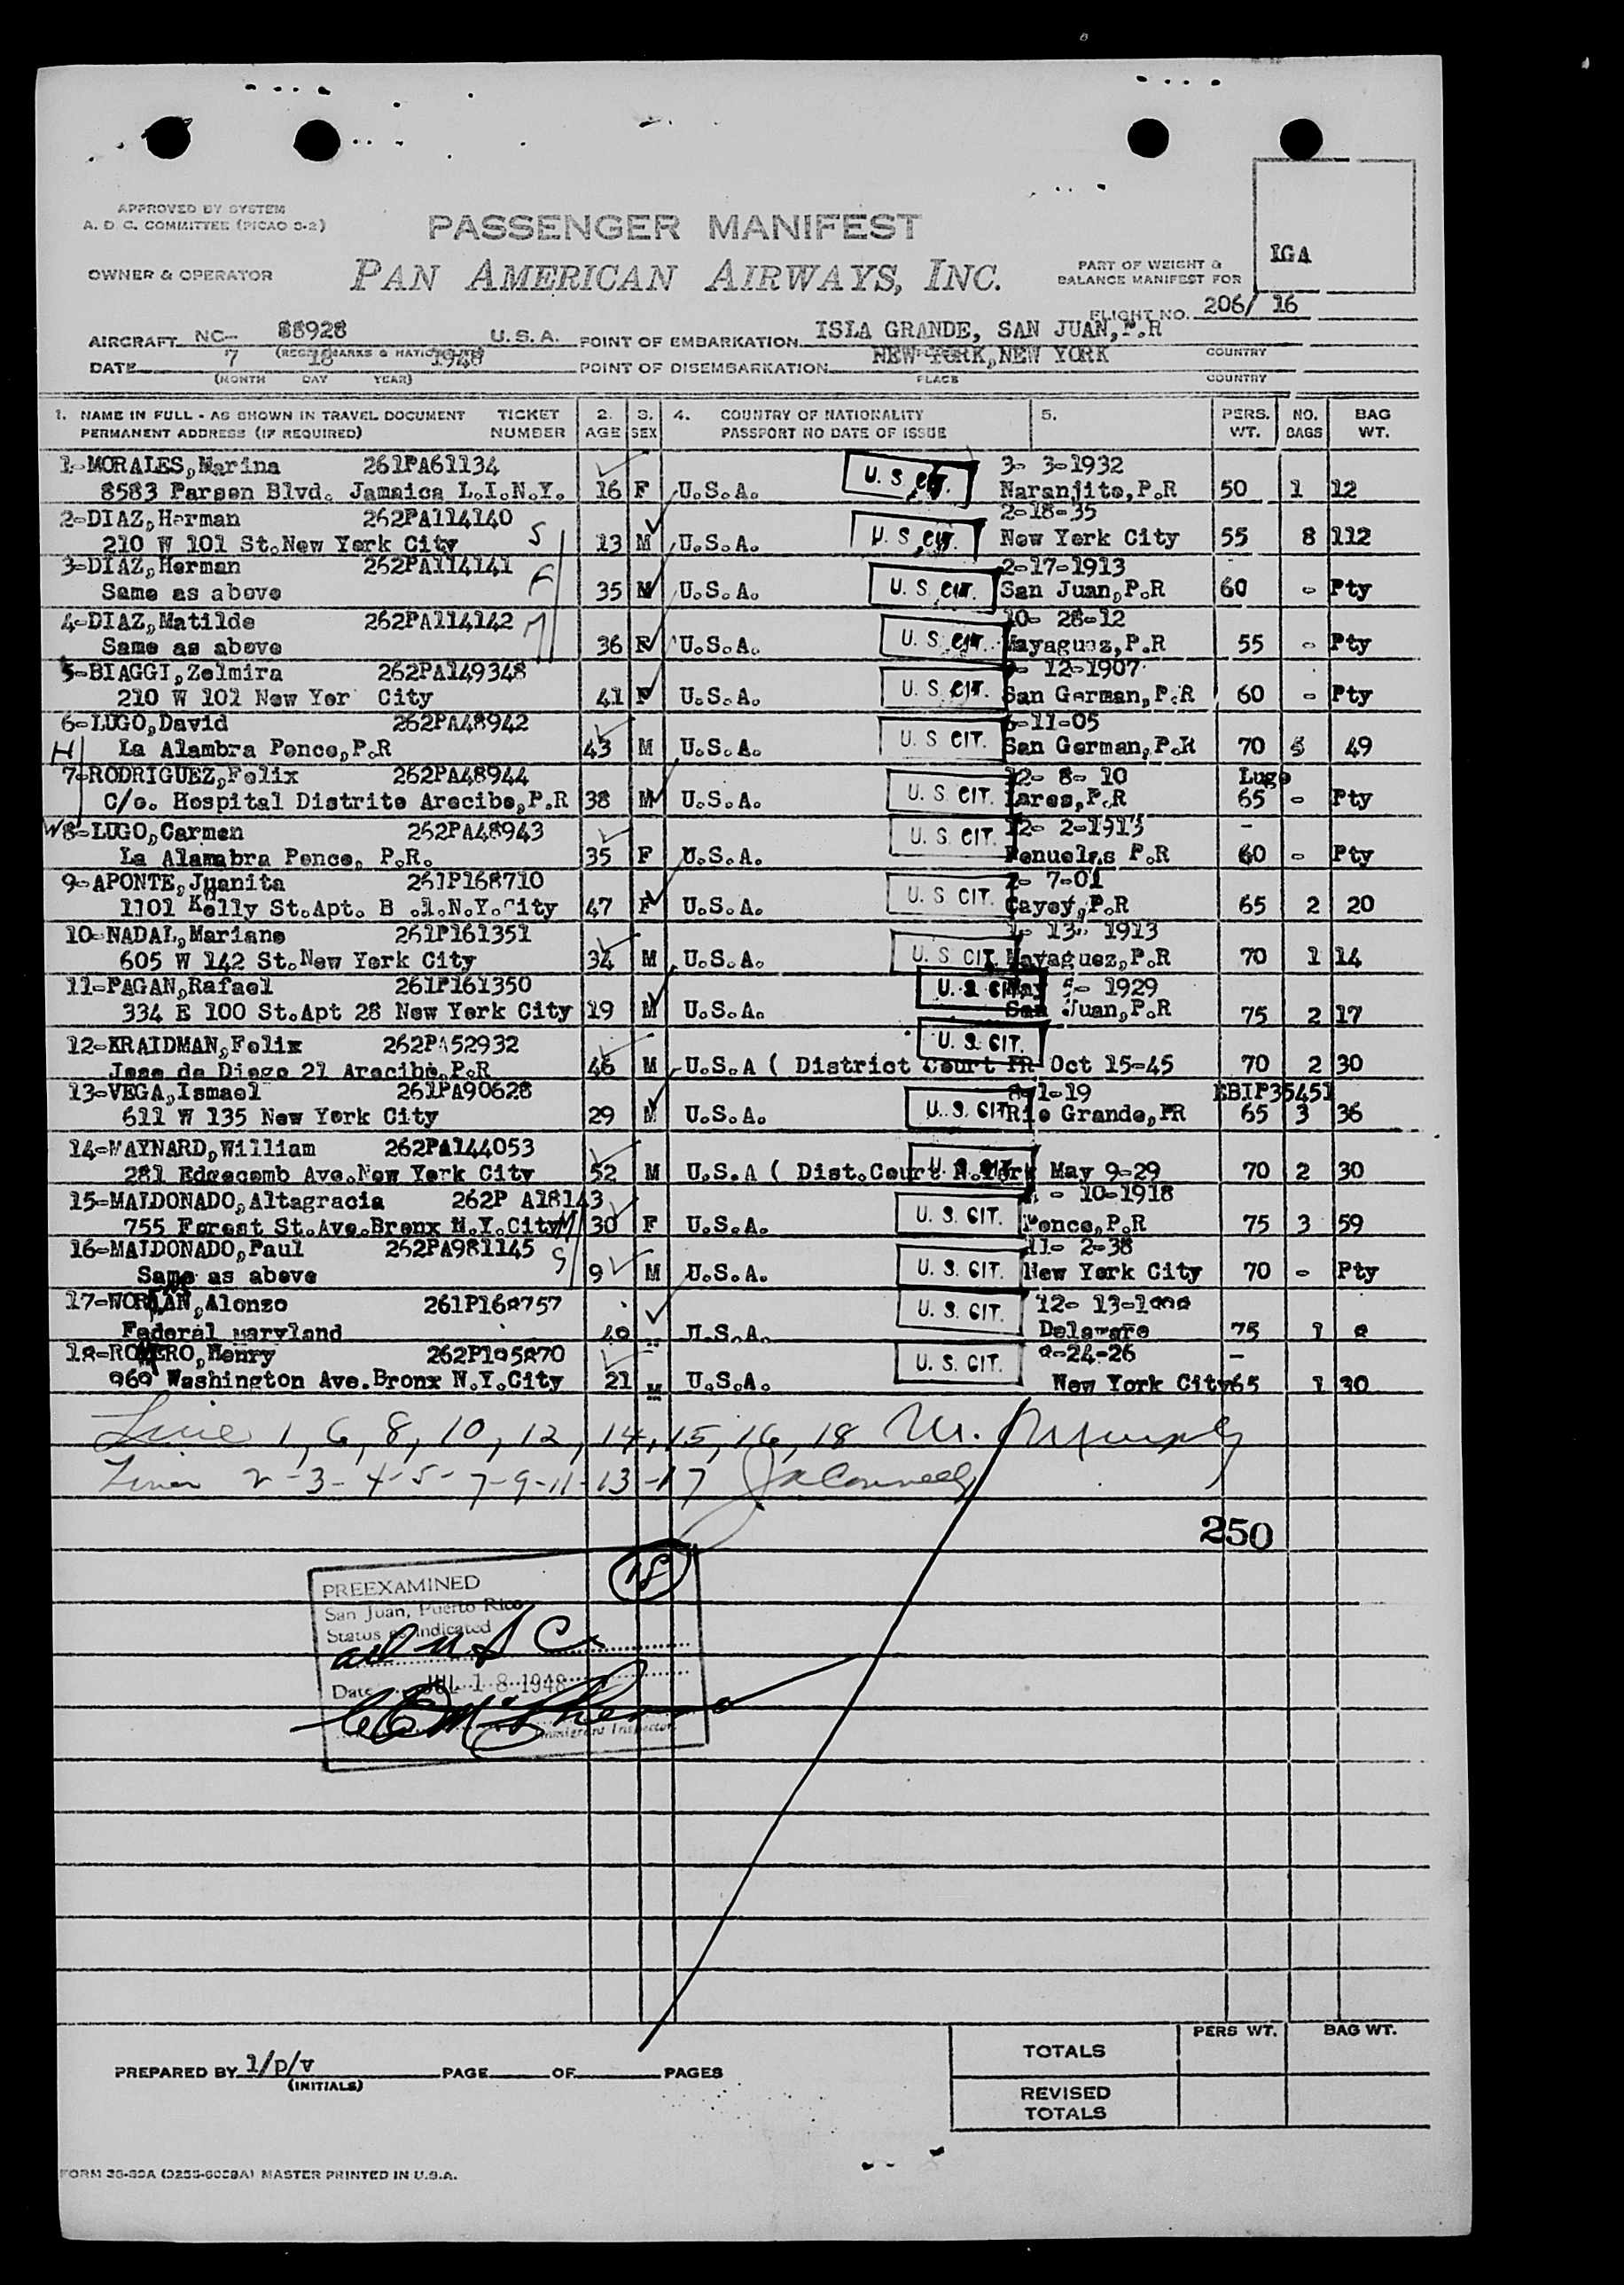 APPROVED BY SYSTEM
A. D. C. COMMITTEE (PICAO S-2)
PASSENGER MANIFEST
OWNER & OPERATOR PAN AMERICAN AIRWAYS, INC.
PART OF WEIGHT &
BALANCE MANIFEST FOR
IGA
FLIGHT NO. 206/ 16
AIRCRAFT NC- 88928 U.S.A. POINT OF EMBARKATION ISLA GRANDE, SAN JUAN, P.R
(REG. MARKS & COUNTRY
DATE 7 18 1948 POINT OF DISEMBARKATION NEW YORK, NEW YORK
(MONTH DAY YEAR) PLACE COUNTRY
1. NAME IN FULL - AS SHOWN IN TRAVEL DOCUMENT TICKET 2. 3. 4. COUNTRY OF NATIONALITY 5. PERS. NO. BAG
PERMANENT ADDRESS (IF REQUIRED) NUMBER AGE SEX PASSPORT NO DATE OF ISSUE WT. BAGS WT.
1-MORALES, Marina 261PA61134 U. S. CIT. 3- 3-1932
8583 Parson Blvd. Jamaica L.I.N.Y. 16 F U.S.A. Naranjito, P.R 50 1 12
2-DIAZ, Herman 262PA114140 S U. S. CIT. 2-18-35
210 W 101 St. New York City 13 M U.S.A. New York City 55 8 112
3-DIAZ, Herman 262PA114141 F U. S. CIT. 2-17-1913
Same as above 35 M U.S.A. San Juan, P.R 60 - Pty
4-DIAZ, Matilde 262PA114142 M U. S. CIT. 10- 28-12
Same as above 36 F U.S.A. Mayaguez, P.R 55 - Pty
5-BIAGGI, Zelmira 262PA149348 U. S. CIT. 12-1907
210 W 101 New Yor City 41 F U.S.A. San German, P.R 60 - Pty
6-LUGO, David 262PA48942 U. S. CIT. -11-05
H La Alambra Ponce, P.R 43 M U.S.A. San German, P.R 70 5 49
7-RODRIGUEZ, Felix 262PA48944 U. S. CIT. 12- 8- 10 Lugo
C/o. Hospital Distrito Arecibo, P.R 38 M U.S.A. Lares, P.R 65 - Pty
W 8-LUGO, Carmen 262PA48943 U. S. CIT. 12- 2-1913 -
La Alamabra Ponce, P.R. 35 F U.S.A. Penuelas P.R 60 - Pty
9-APONTE, Juanita 261P168710 U. S. CIT. 2- 7-01
1101 Kelly St.Apt. B .1.N.Y.City 47 F U.S.A. Cayey, P.R 65 2 20
10-NADAL, Mariano 261P161351 U. S. CIT. 1- 13- 1913
605 W 142 St. New York City 34 M U.S.A. Mayaguez, P.R 70 1 14
11-PAGAN, Rafael 261P161350 U. S. CIT. May 5- 1929
334 E 100 St.Apt 28 New York City 19 M U.S.A. San Juan, P.R 75 2 17
12-KRAIDMAN, Felix 262PA52932 U. S. CIT.
Jose de Diego 21 Arecibo, P.R 46 M U.S.A ( District Court PR Oct 15-45 70 2 30
13-VEGA, Ismael 261PA90628 U. S. CIT. 8-1-19 EBIP35451
611 W 135 New York City 29 M U.S.A. Rio Grande, PR 65 3 36
14-MAYNARD, William 262PA144053 U. S. CIT.
281 Edgecomb Ave. New York City 52 M U.S.A ( Dist.Court N.York May 9-29 70 2 30
15-MALDONADO, Altagracia 262P A18143 U. S. CIT. - 10-1918
755 Forest St.Ave.Bronx N.Y.City M 30 F U.S.A. Ponce, P.R 75 3 59
16-MALDONADO, Paul 262PA981145 S U. S. CIT. 11- 2-38
Same as above 9 M U.S.A. New York City 70 - Pty
17- Alonzo U. S. CIT. 12-
Federal Maryland U.S.A. Delaware 75 1
18-ROMERO, Henry U. S. CIT. -24-26 -
969 Washington Ave.Bronx N.Y.City 21 M U.S.A. New York City 65 1 30
Line 1, 6, 8, 10, 12, 14, 15, 16, 18 M. Murphy
Lines 2-3-4-5-7-9-11-13-17
250
PREEXAMINED 18
San Juan, Puerto Rico
Status as Indicated
all U S C
Date JUL 18 1948
Immigrant Inspector
PERS WT. BAG WT.
TOTALS
PREPARED BY 1/p/v PAGE OF PAGES
(INITIALS)
REVISED
TOTALS
MASTER PRINTED IN U.S.A.